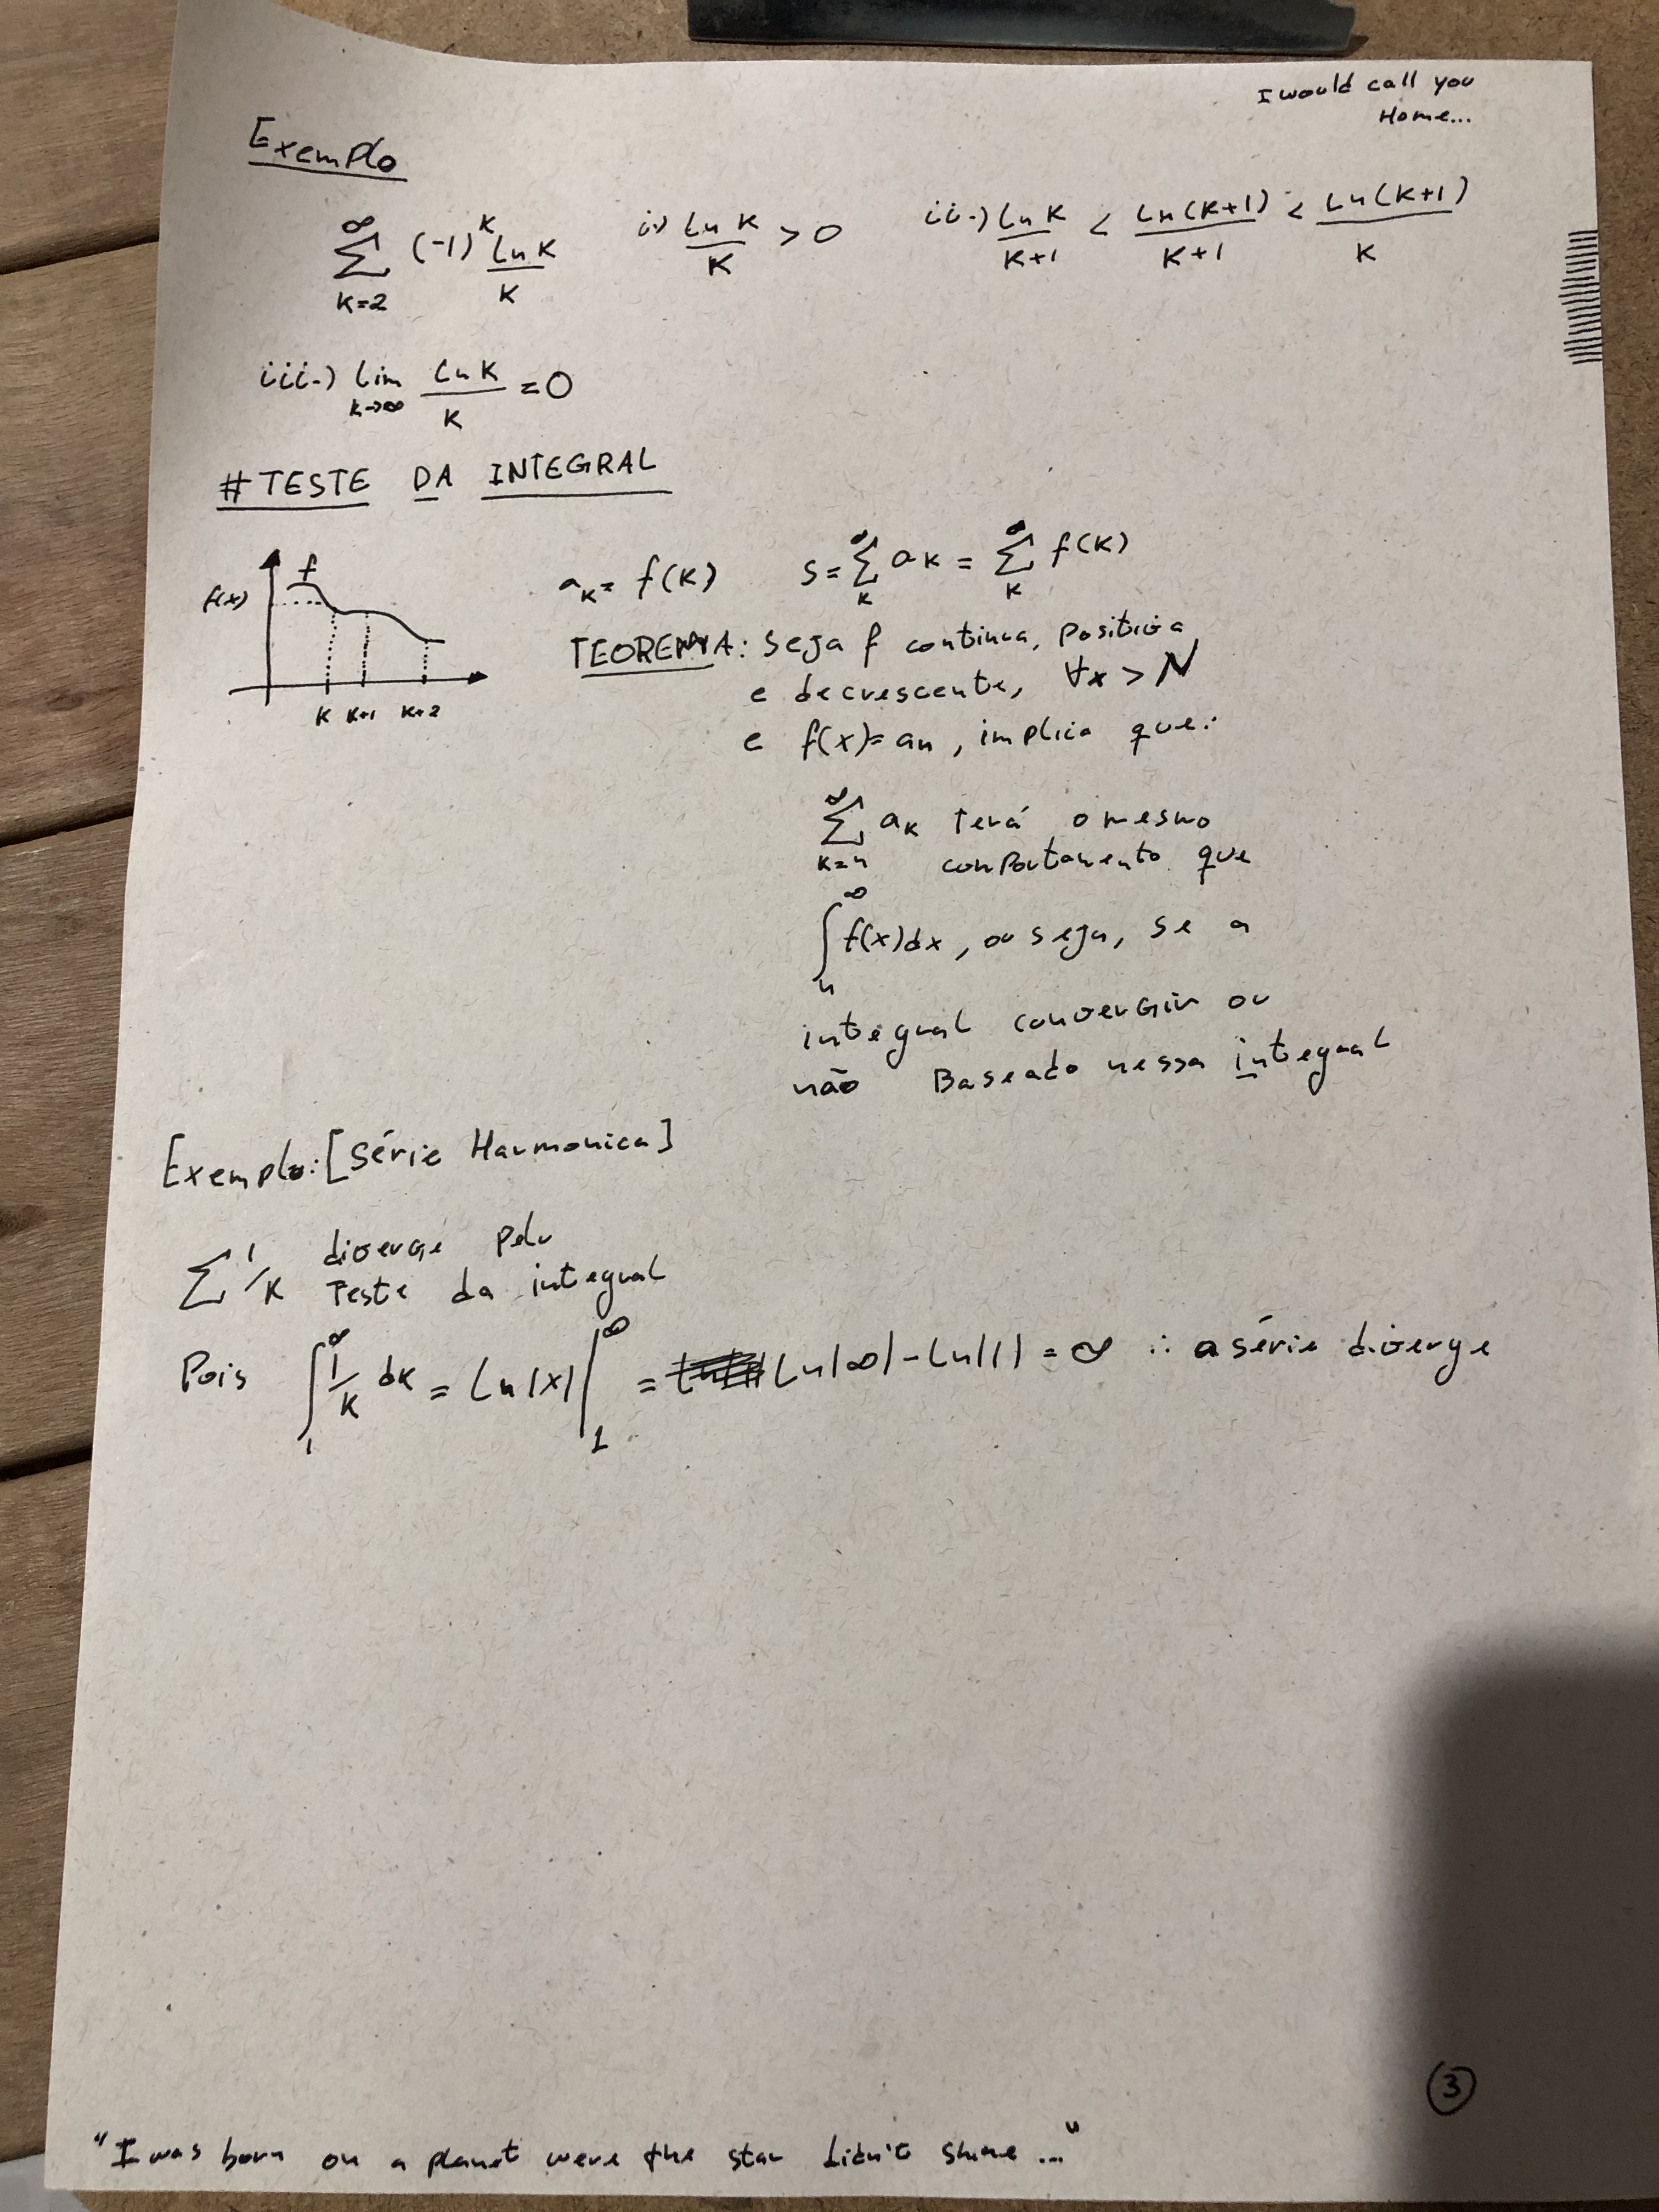 I would call you
Home...
Exemplo
∞ Σ K=2 (-1)^K Ln K / K   i.) Ln K / K > 0   ii.) Ln K / K+1 < Ln(K+1) / K+1 < Ln(K+1) / K
iii.) Lim K→∞ Ln K / K = 0
# TESTE DA INTEGRAL
f
f(x)
K K+1 K+2
a_K = f(K)   S = ∞ Σ K a_K = ∞ Σ K f(K)
TEOREMA: Seja f continua, positiva
e decrescente, ∀x > N
e f(x)=an, implica que:
∞ Σ K=n a_K terá o mesmo
comportamento que
∫ n ∞ f(x)dx, ou seja, se a
integral convergir ou
não Baseado nessa integral
Exemplo: [Série Harmonica]
Σ 1/K diverge pelo
Teste da integral
Pois ∫ 1 ∞ 1/K dK = Ln|x| | 1 ∞ = Ln|∞| - Ln|1| = ∞ ∴ a série diverge
3
"I was born on a planet were the star didn't shine ..."